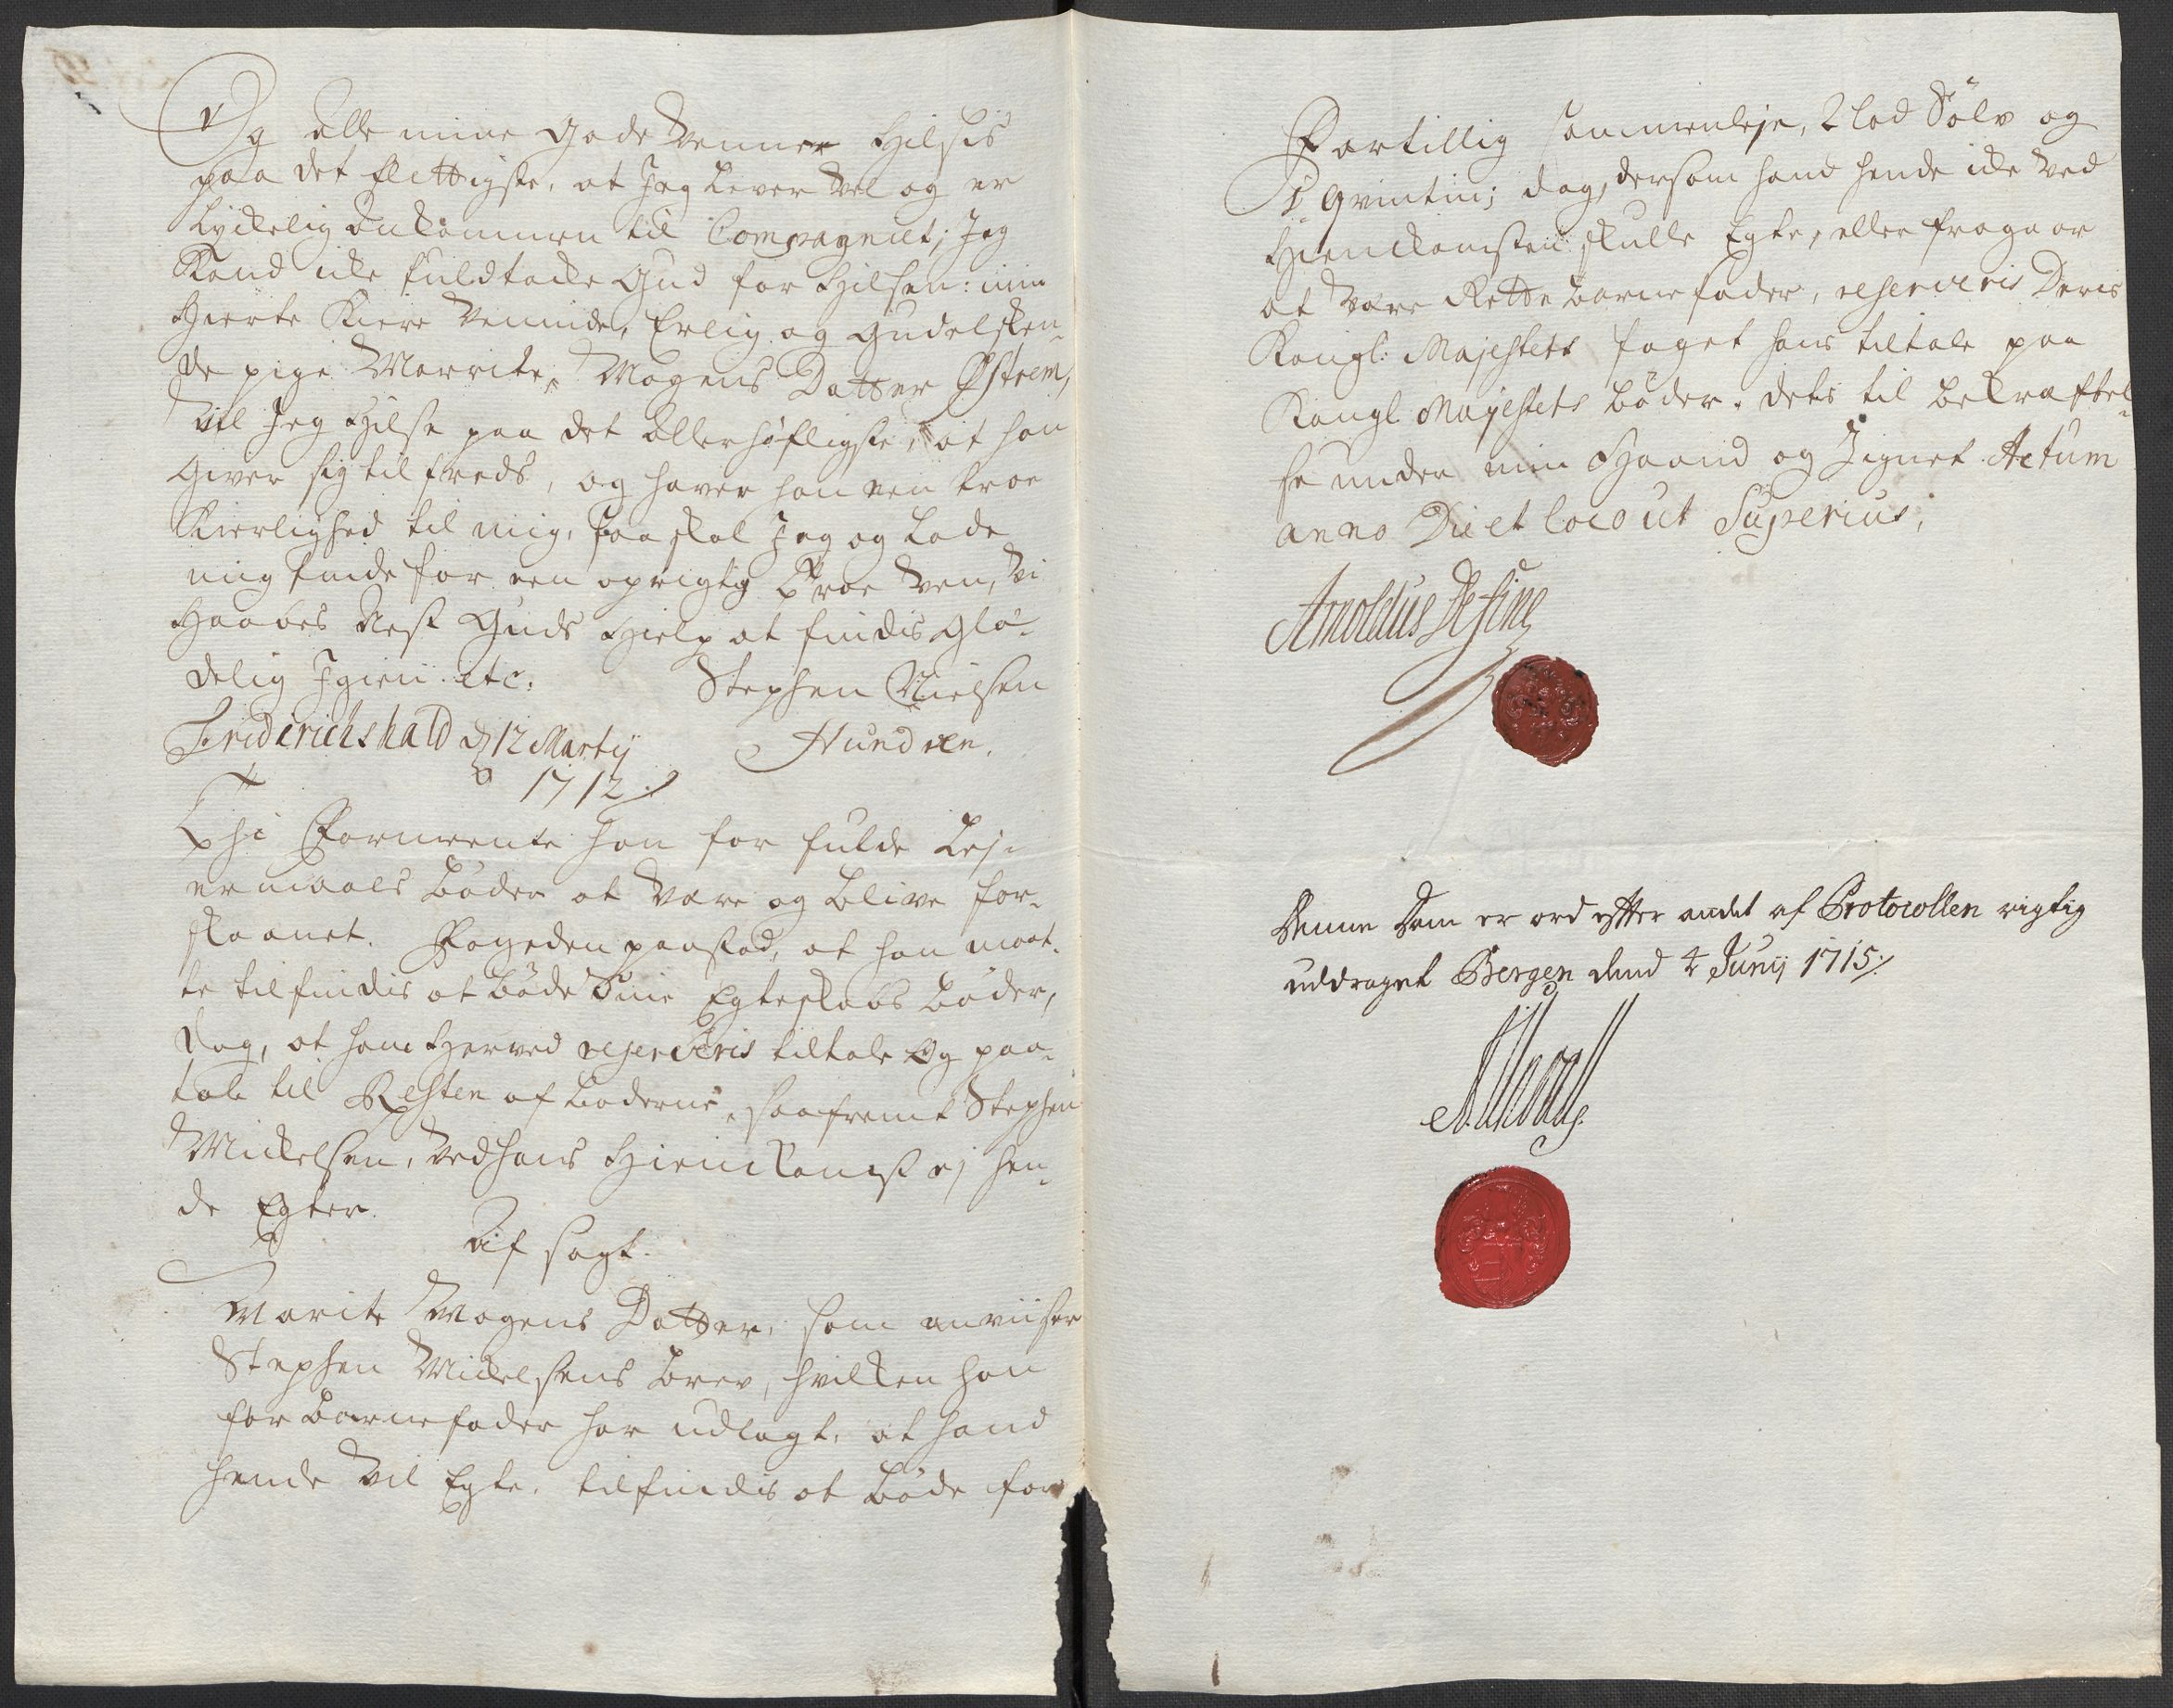 Og alle mine gode Venner Hilsis
paa det flittigste, at Jeg Lever vel og er
Lyckelig ankommen til Compagniet; Jeg
Kand icke fuldtacke Gud for Hilsen: min
Hierte Kiere Veninde, Erlig og Gudelsken-
de pige Marrite Mogens Datter Østrem,
vil Jeg Hilse paa det allerhøfligste, at hon
Giver sig til freds, og haver hon een troe
Kierlighed til mig, saa skal Jeg og Lade
mig finde for een oprigtig troe Ven, Vi
Haabes Nest Guds Hielp at findis Glæ-
delig Igien etc. Stephen Nielsen
Friderichshald d 12 Martij Hundven.
1712
Thi Formeente hon for fulde Lej-
ermaals bøder at være og blive for-
skaanet. Fogeden paastod, at hon maat-
te tilfindis at bøde Sine Egteskabs bøder,
dog, at ham Herved reserveris tiltale Og paa-
tale til Resten af bøderne, saafremt Stephen
Mickelsen, ved hans Hiemkomst ej hen-
de Egter.
Af sagt.
Marite Mogens Datter, som anviiser
Stephen Mickelsens brev, hvilken hon
for barnefader har udlagt, at hand
hende vil Egte, tilfindis at bøde for
Fortillig sammenleje, 2 lod Sølv og
1 qvintin; dog, dersom hand hende icke ved
Hiemkomsten skulle Egte, eller fragaar
at være Rette barnefader, reserveris Deris
Kongl: Majestets foget hans tiltale paa
Kongl Majestets bøder. dets til bekræftel-
se under min Haand og Signet. Actum
anno Die et loco ut Superius.
Arnoldus De fine
Denne Dom er ord efter andet af Protocollen rigtig
uddraget Bergen dend 4 Junij 1715